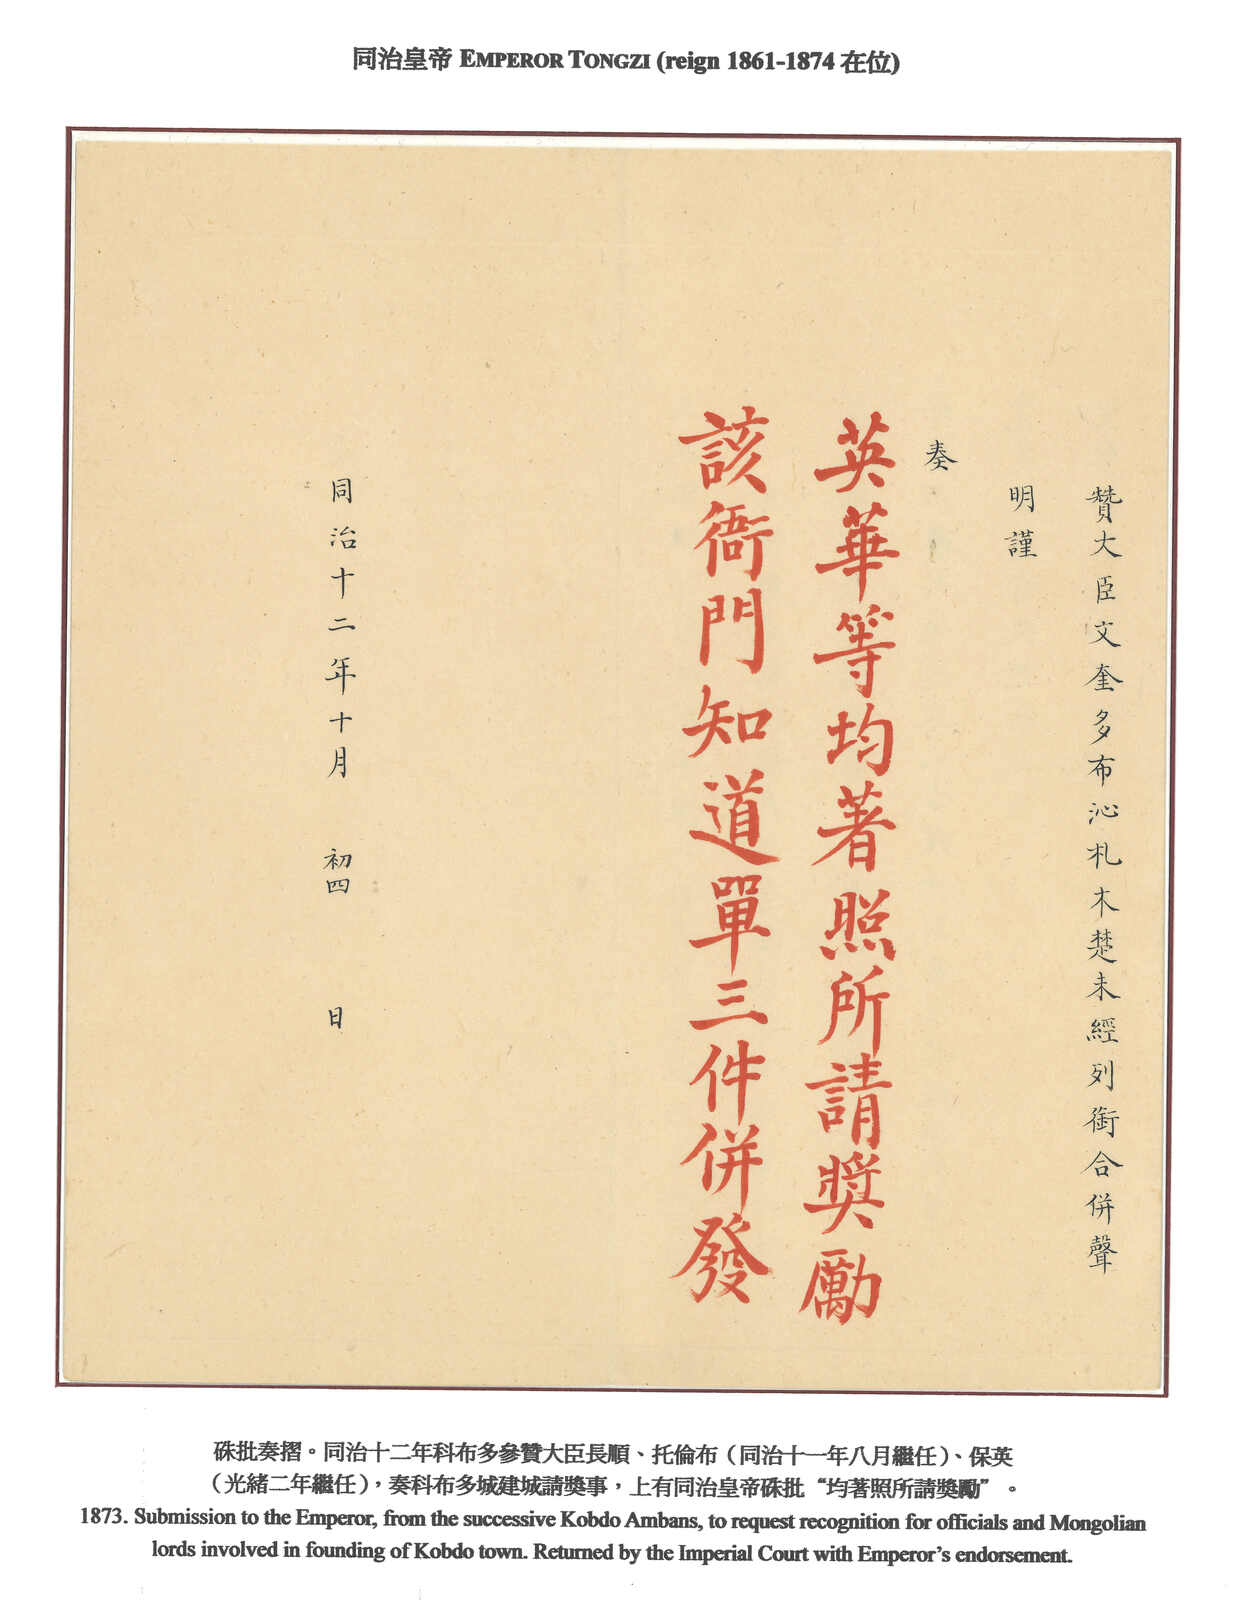 同治皇帝 EMPEROR TONGZI (reign 1861-1874 在位)
贊大臣文奎多布沁札木楚未經列銜合併聲
明謹
奏
英華等均著照所請獎勵
該衙門知道單三件併發
同治十二年十月初四日
硃批奏摺。同治十二年科布多參贊大臣長順、托倫布（同治十一年八月繼任）、保英
（光緒二年繼任），奏科布多城建城請獎事，上有同治皇帝硃批“均著照所請獎勵”。
1873. Submission to the Emperor, from the successive Kobdo Ambans, to request recognition for officials and Mongolian
lords involved in founding of Kobdo town. Returned by the Imperial Court with Emperor's endorsement.